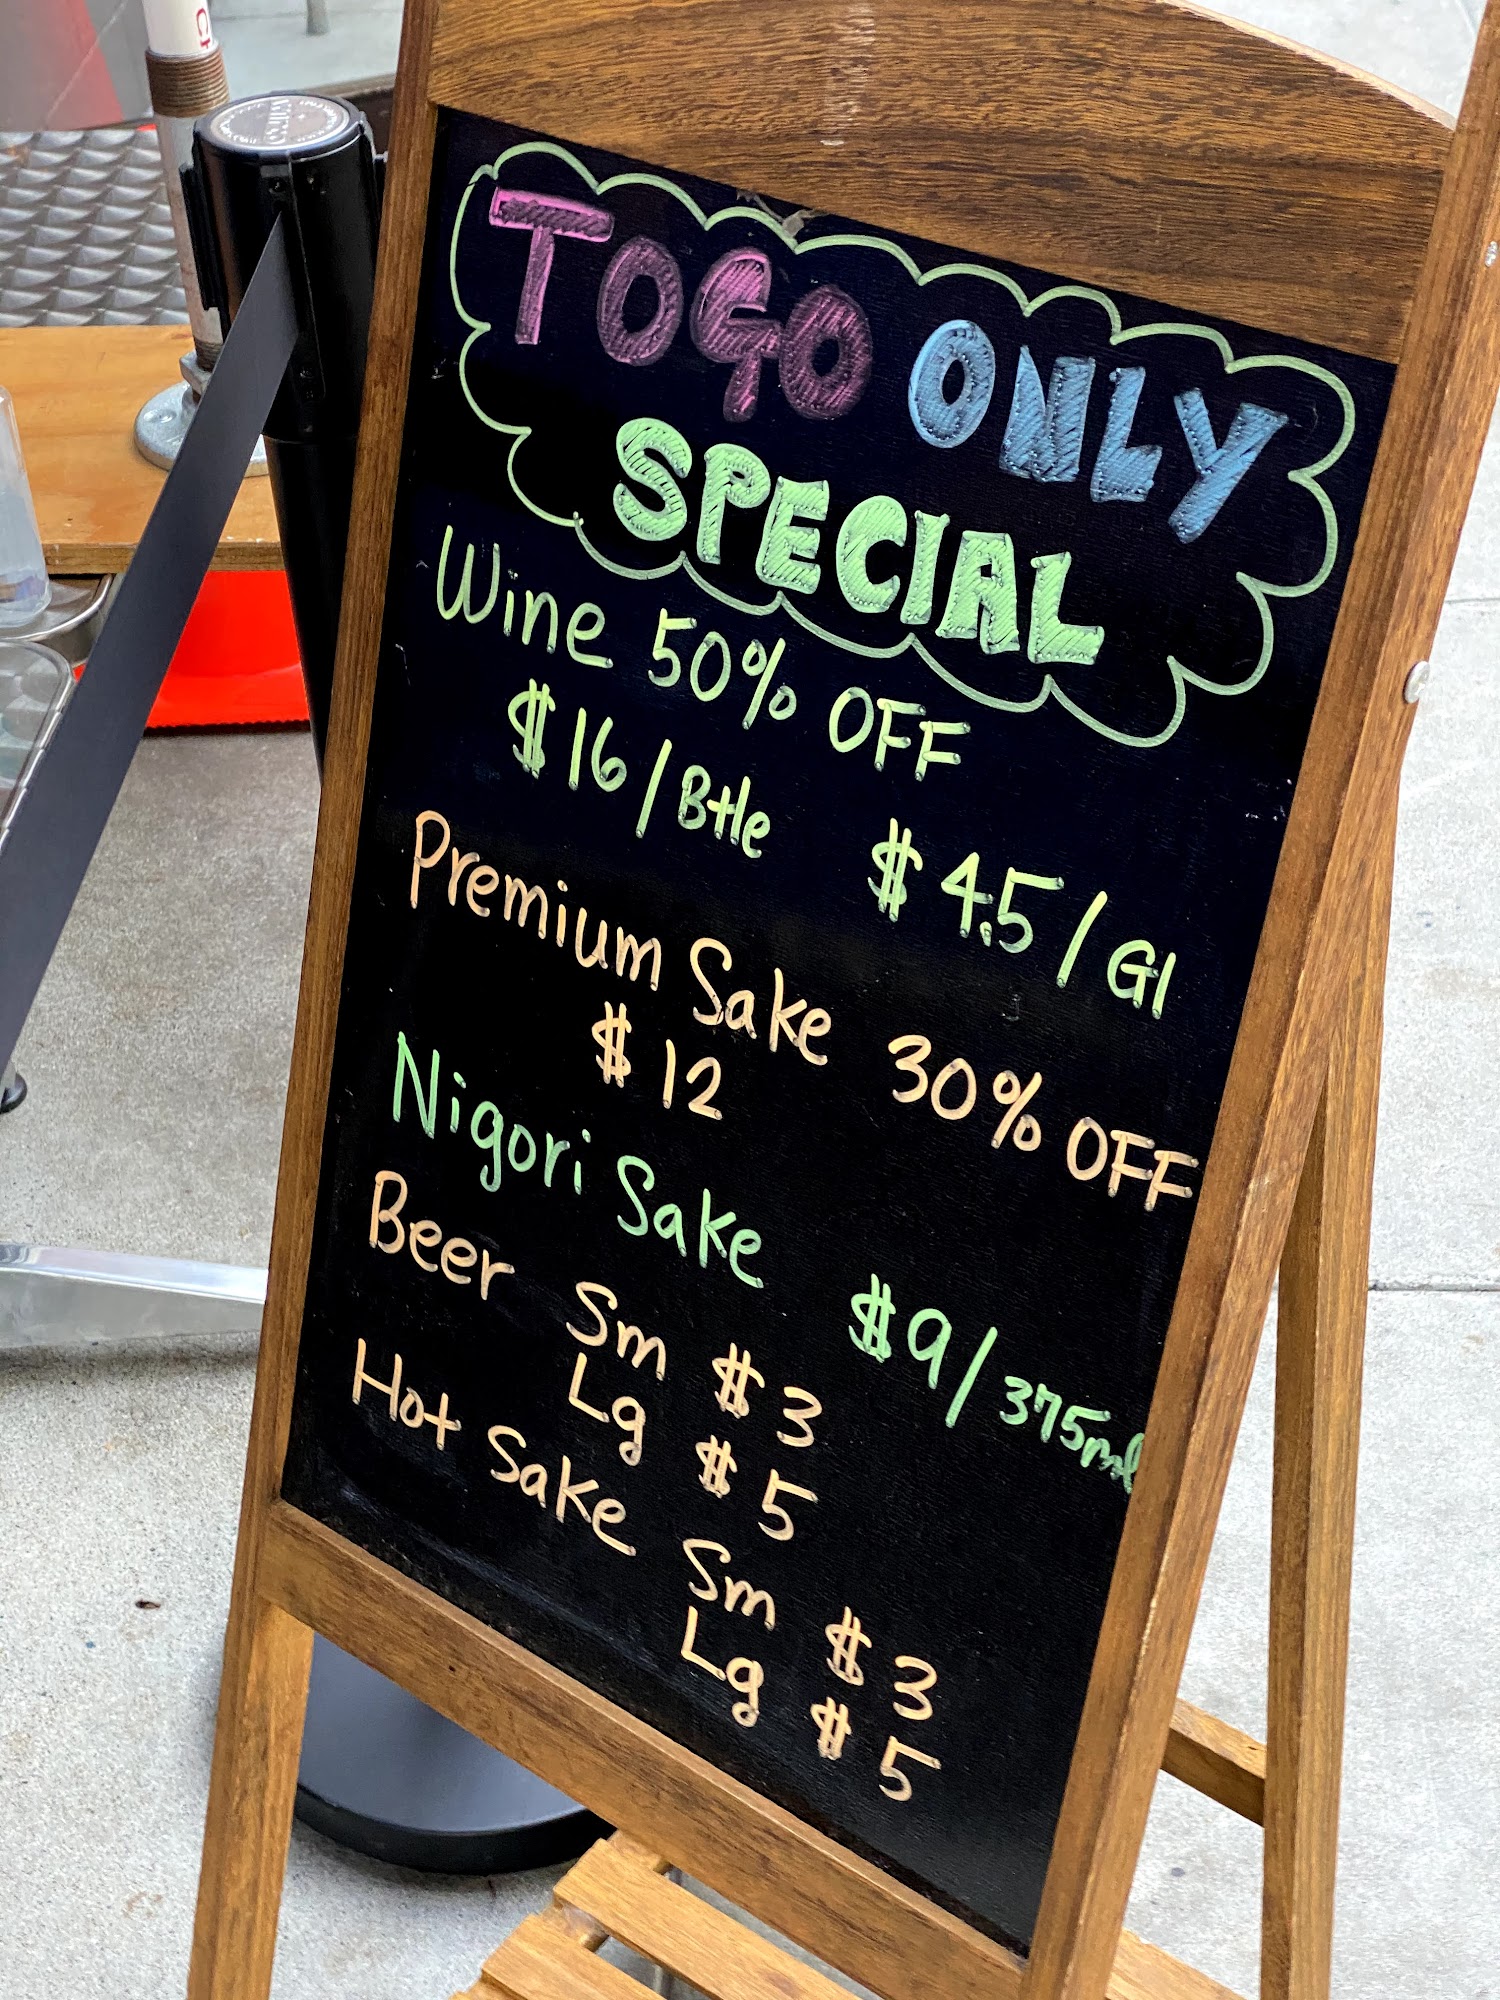 TOGO ONLY
SPECIAL
Wine 50% OFF
$16/Btle $4.5/Gl
Premium Sake 30% OFF
$12
Nigori Sake $9/375ml
Beer Sm $3
Lg $5
Hot Sake Sm $3
Lg $5